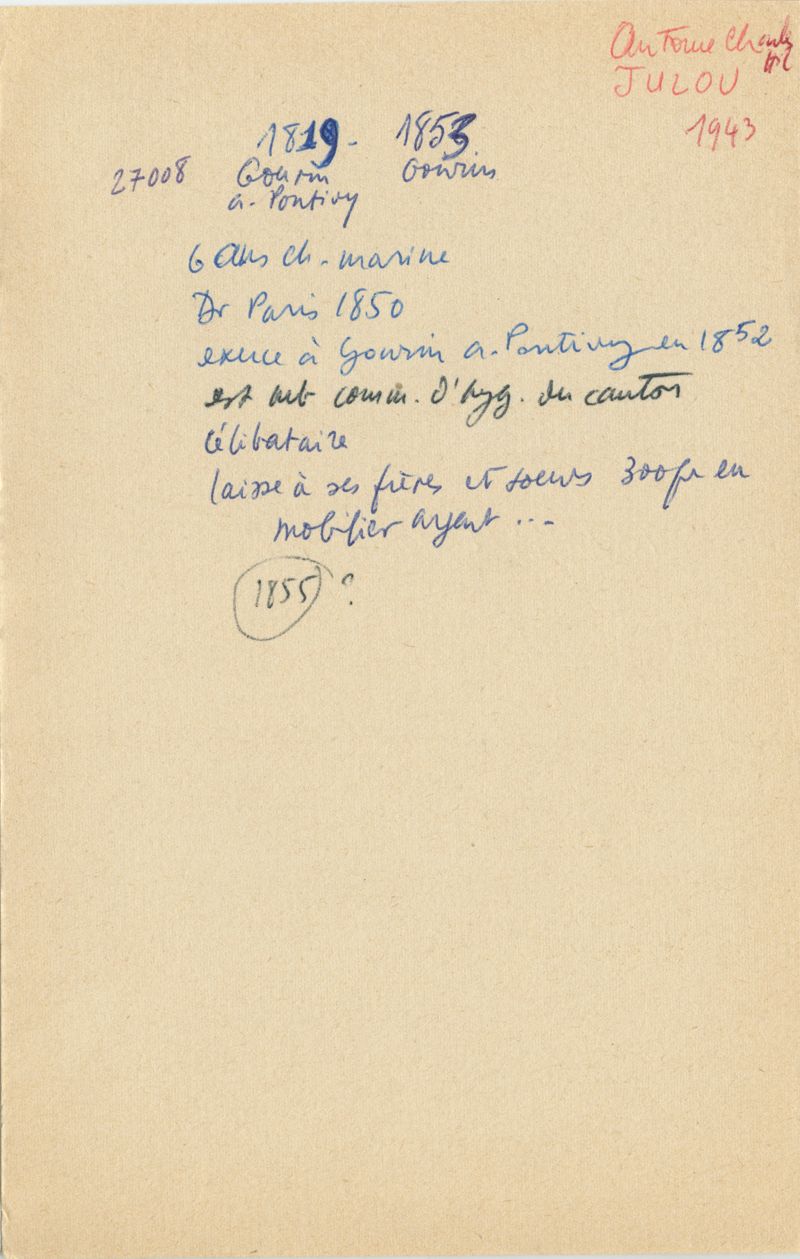 Antoine Charles
Hil
JULOU
1943
1819 - 1853
27008 Gourin Gourin
a. Pontivy
6 ans ch. marine
Dr Paris 1850
exerce à Gourin a. Pontivy en 1852
est mb comm. d'hyg. du canton
célibataire
laisse à ses frères et soeurs 300fr en
mobilier argent ...
1855 ?